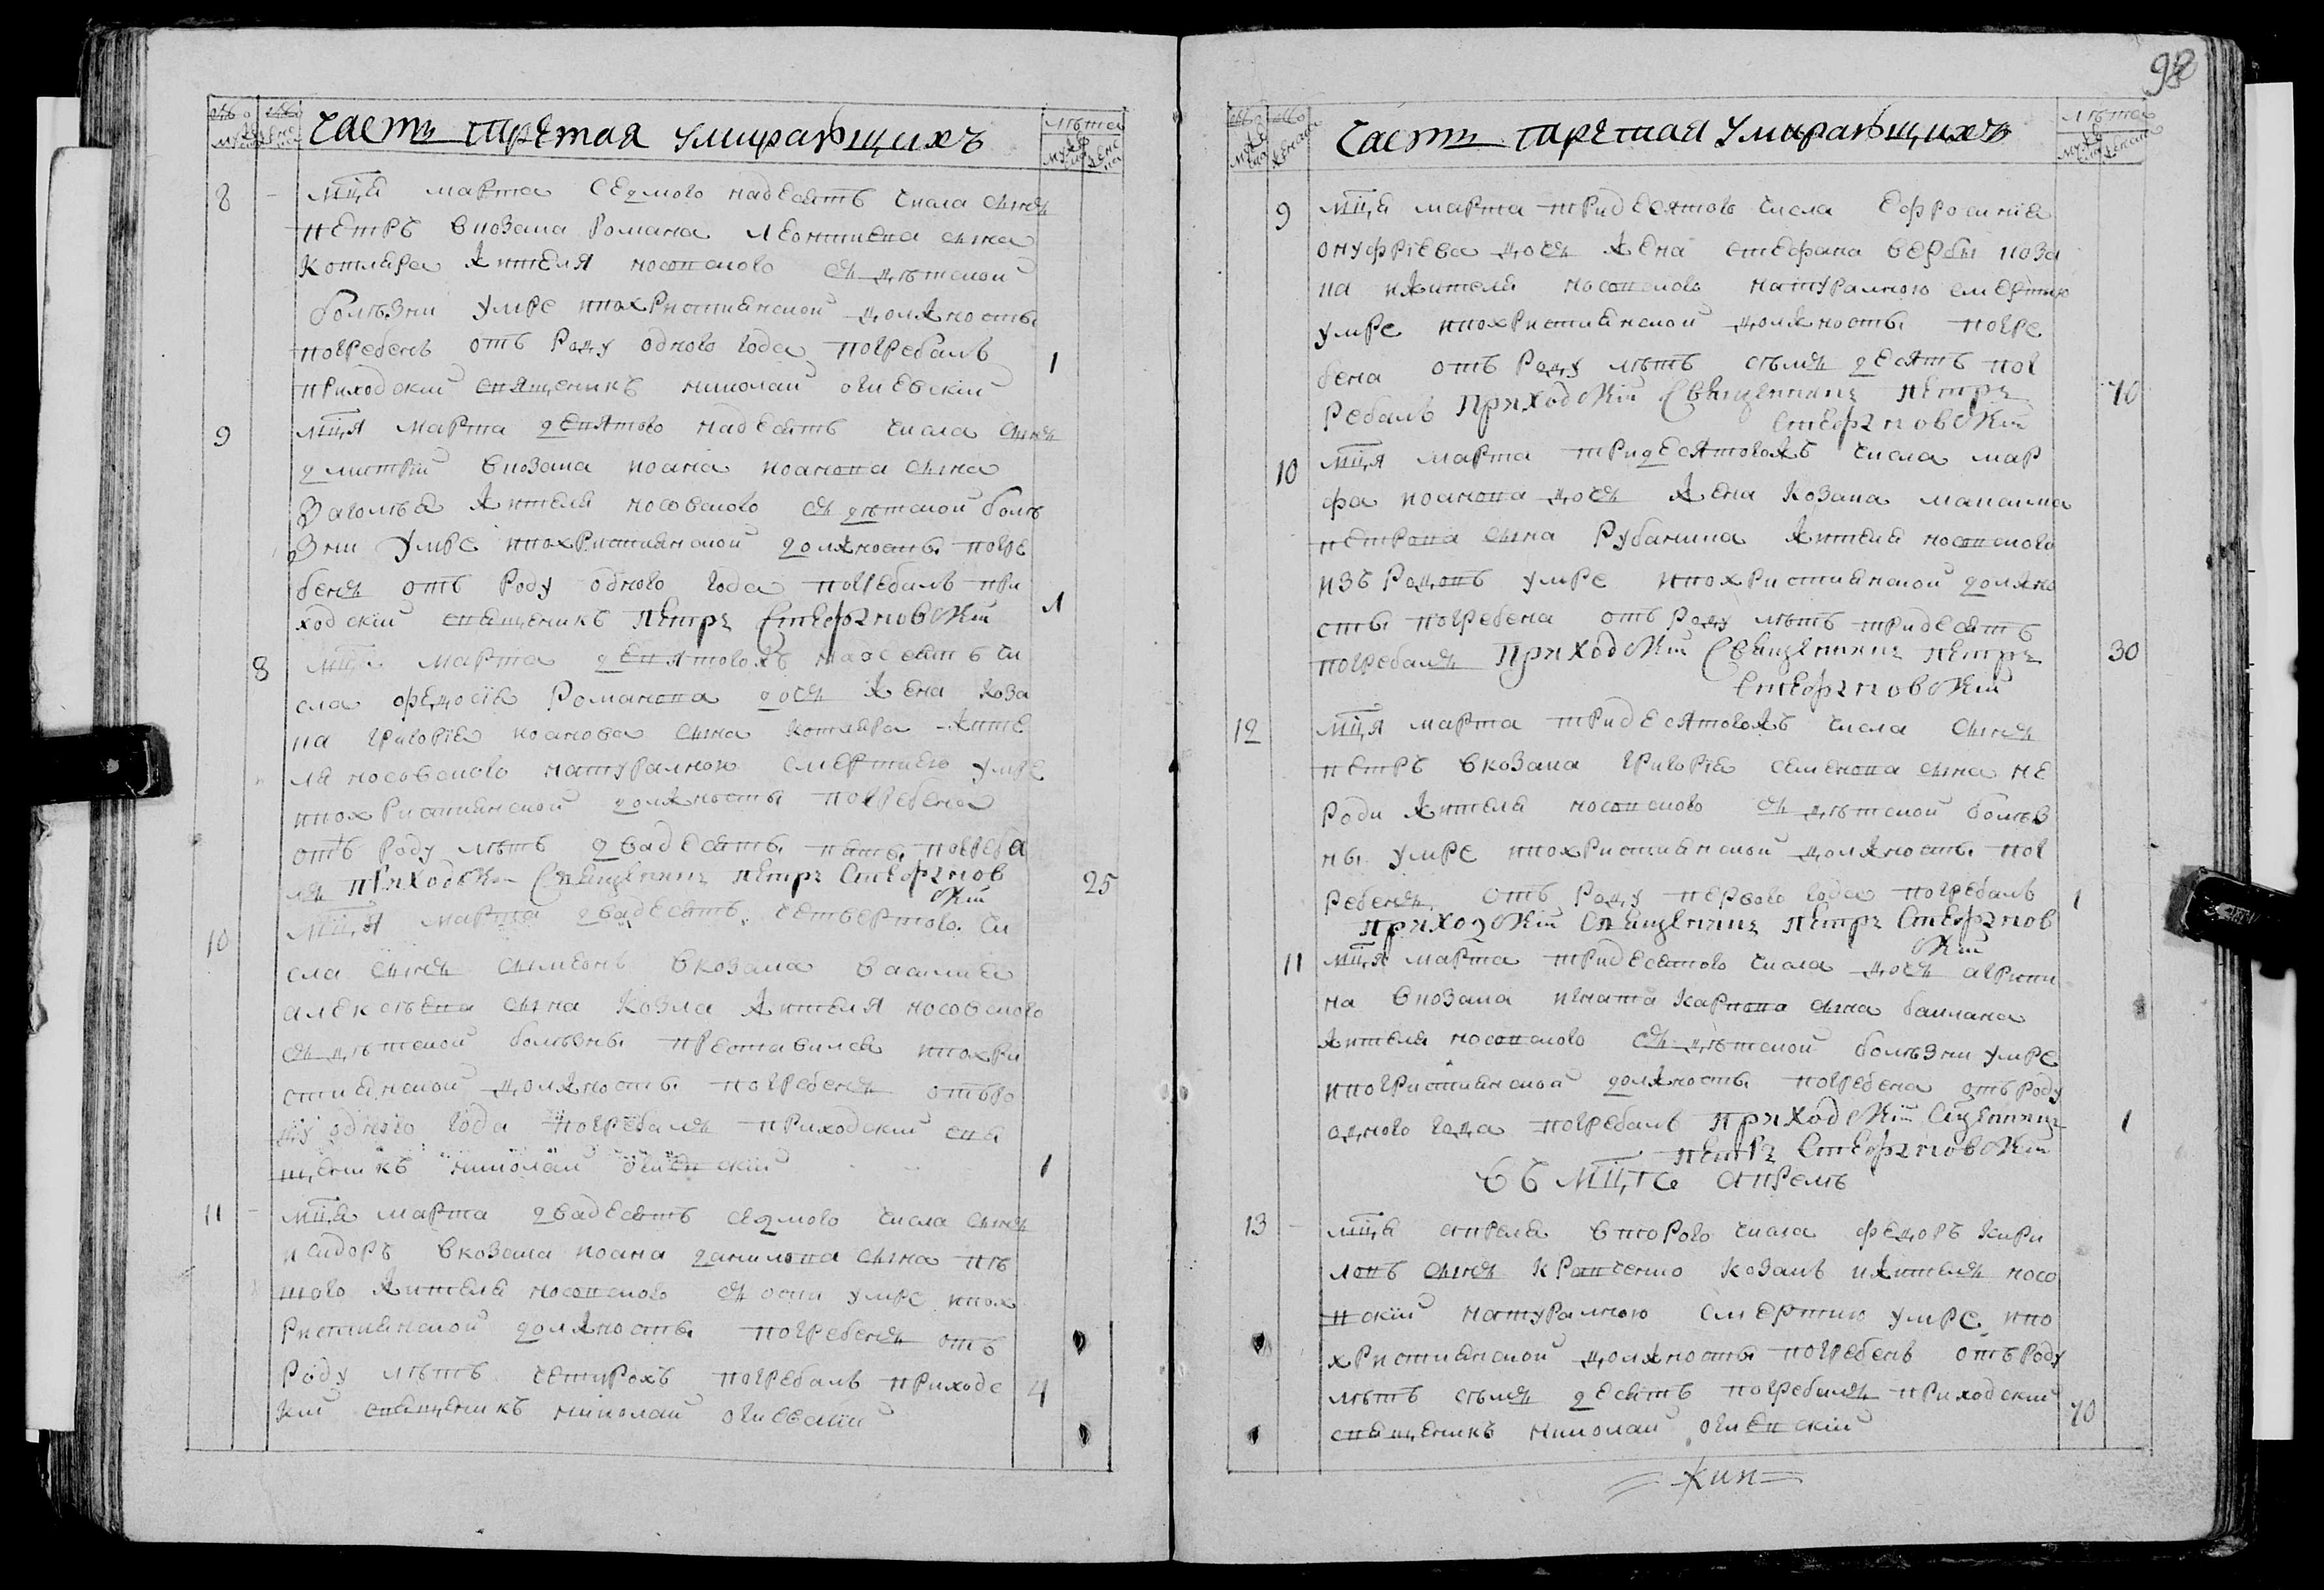 часть третая умирающихъ
лѣта
8 - мц҃а марта седмого надесять числа сынъ
петръ вкозака романа леонтиева сына
котляра жителя носовского съ дѣтской
болѣзни умре ипохристианской должносты
погребенъ отъ роду одного года погребалъ 1
приходскій священикъ николай огиевскій
9 мц҃я марта девятого надесять числа сынъ
димитрій вкозака иоана иоанова сына
заголѣя жителя носовского съ дѣтской болѣ
зни умре ипохристианской должносты погре
бенъ отъ роду одного года погребалъ при
ходскій священикъ петръ стефановскій 1
8 мц҃а марта девятогожъ надесять чи
сла федосія романова дочъ жена коза
ка григорія иоанова сына котляра жите
ля носовского натуралною смертию умре
ипохристианской должносты погребена
отъ роду лѣтъ двадесять пять погреба
лъ приходскій священникъ петръ стефанов 25
скій
10 мц҃я марта двадесять четвертого чи
сла сынъ сымеонъ вкозака василия
алексѣева сына козла жителя носовского
съ дѣтской болѣзны преставился ипохри
стианской должносты погребенъ отъ ро
ду одного года погребалъ приходский свя
щеникъ николай огиевский 1
11 - мц҃а марта двадесять седмого числа сынъ
исидоръ вкозака иоана данилова сына пѣ
того жителя носовского съ оспи умре ипох
ристианской должносты погребенъ отъ
роду лѣтъ четирохъ погребалъ приходс 4
кий священикъ николай огиевский
98
часть третая умирающихъ
лѣта
9 мц҃а марта тридесятого числа ефросиния
онуфріева дочъ жена стефана вербы коза
ка ижителя носовского натуралною смертию
умре ипохристианской должносты погре
бена отъ роду лѣтъ сѣмъ десятъ пог
ребалъ приходскій священникъ петръ 70
стефановскій
10 мц҃я марта тридесятогожъ числа мар
фа иоанова дочъ жена козака максима
петрова сына рубаника жителя носовского
изъ родовъ умре ипохристианской должно
сты погребена отъ роду лѣтъ тридесять
погребалъ приходскій священникъ петръ 30
стефановскій
12 мц҃я марта тридесятогожъ числа сынъ
петръ вкозака григорія семенова сына не
роди жителя носовского съ дѣтской болѣз
ны умре ипохристианской должносты пог
ребенъ отъ роду первого года погребалъ 1
приходскій священникъ петръ стефанов
скій
11 мц҃я марта тридесятого числа дочъ агрипи
на вкозака игната карпова сына баклана
жителя носовского съ дѣтской болѣзни умре
ипогристианской должносты погребена отъ роду
одного года погребалъ приходскій сщенникъ 1
петръ стефановскій
въ мц҃ѣ апрелѣ
13 - мц҃а апреля второго числа федоръ кири
ловъ сынъ кравченко козакъ ижителъ носо
вский натуралною смертию умре ипо
христианской должносты погребенъ отъ роду
лѣтъ сѣмъ десятъ погребалъ приходский
священикъ николай огиевский 70